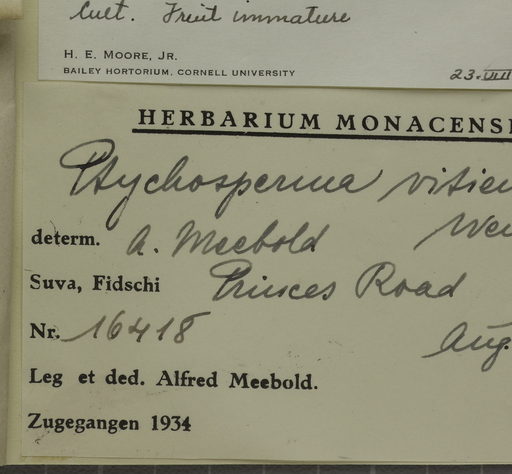 Cult. Fruit immature
H. E. MOORE, JR.
BAILEY HORTORIUM, CORNELL UNIVERSITY
23.VIII
HERBARIUM MONACENS
Ptychosperma vitien
Wen
determ. A. Meebold
Suva, Fidschi Princes Road
Nr. 16418 Aug.
Leg et ded. Alfred Meebold.
Zugegangen 1934